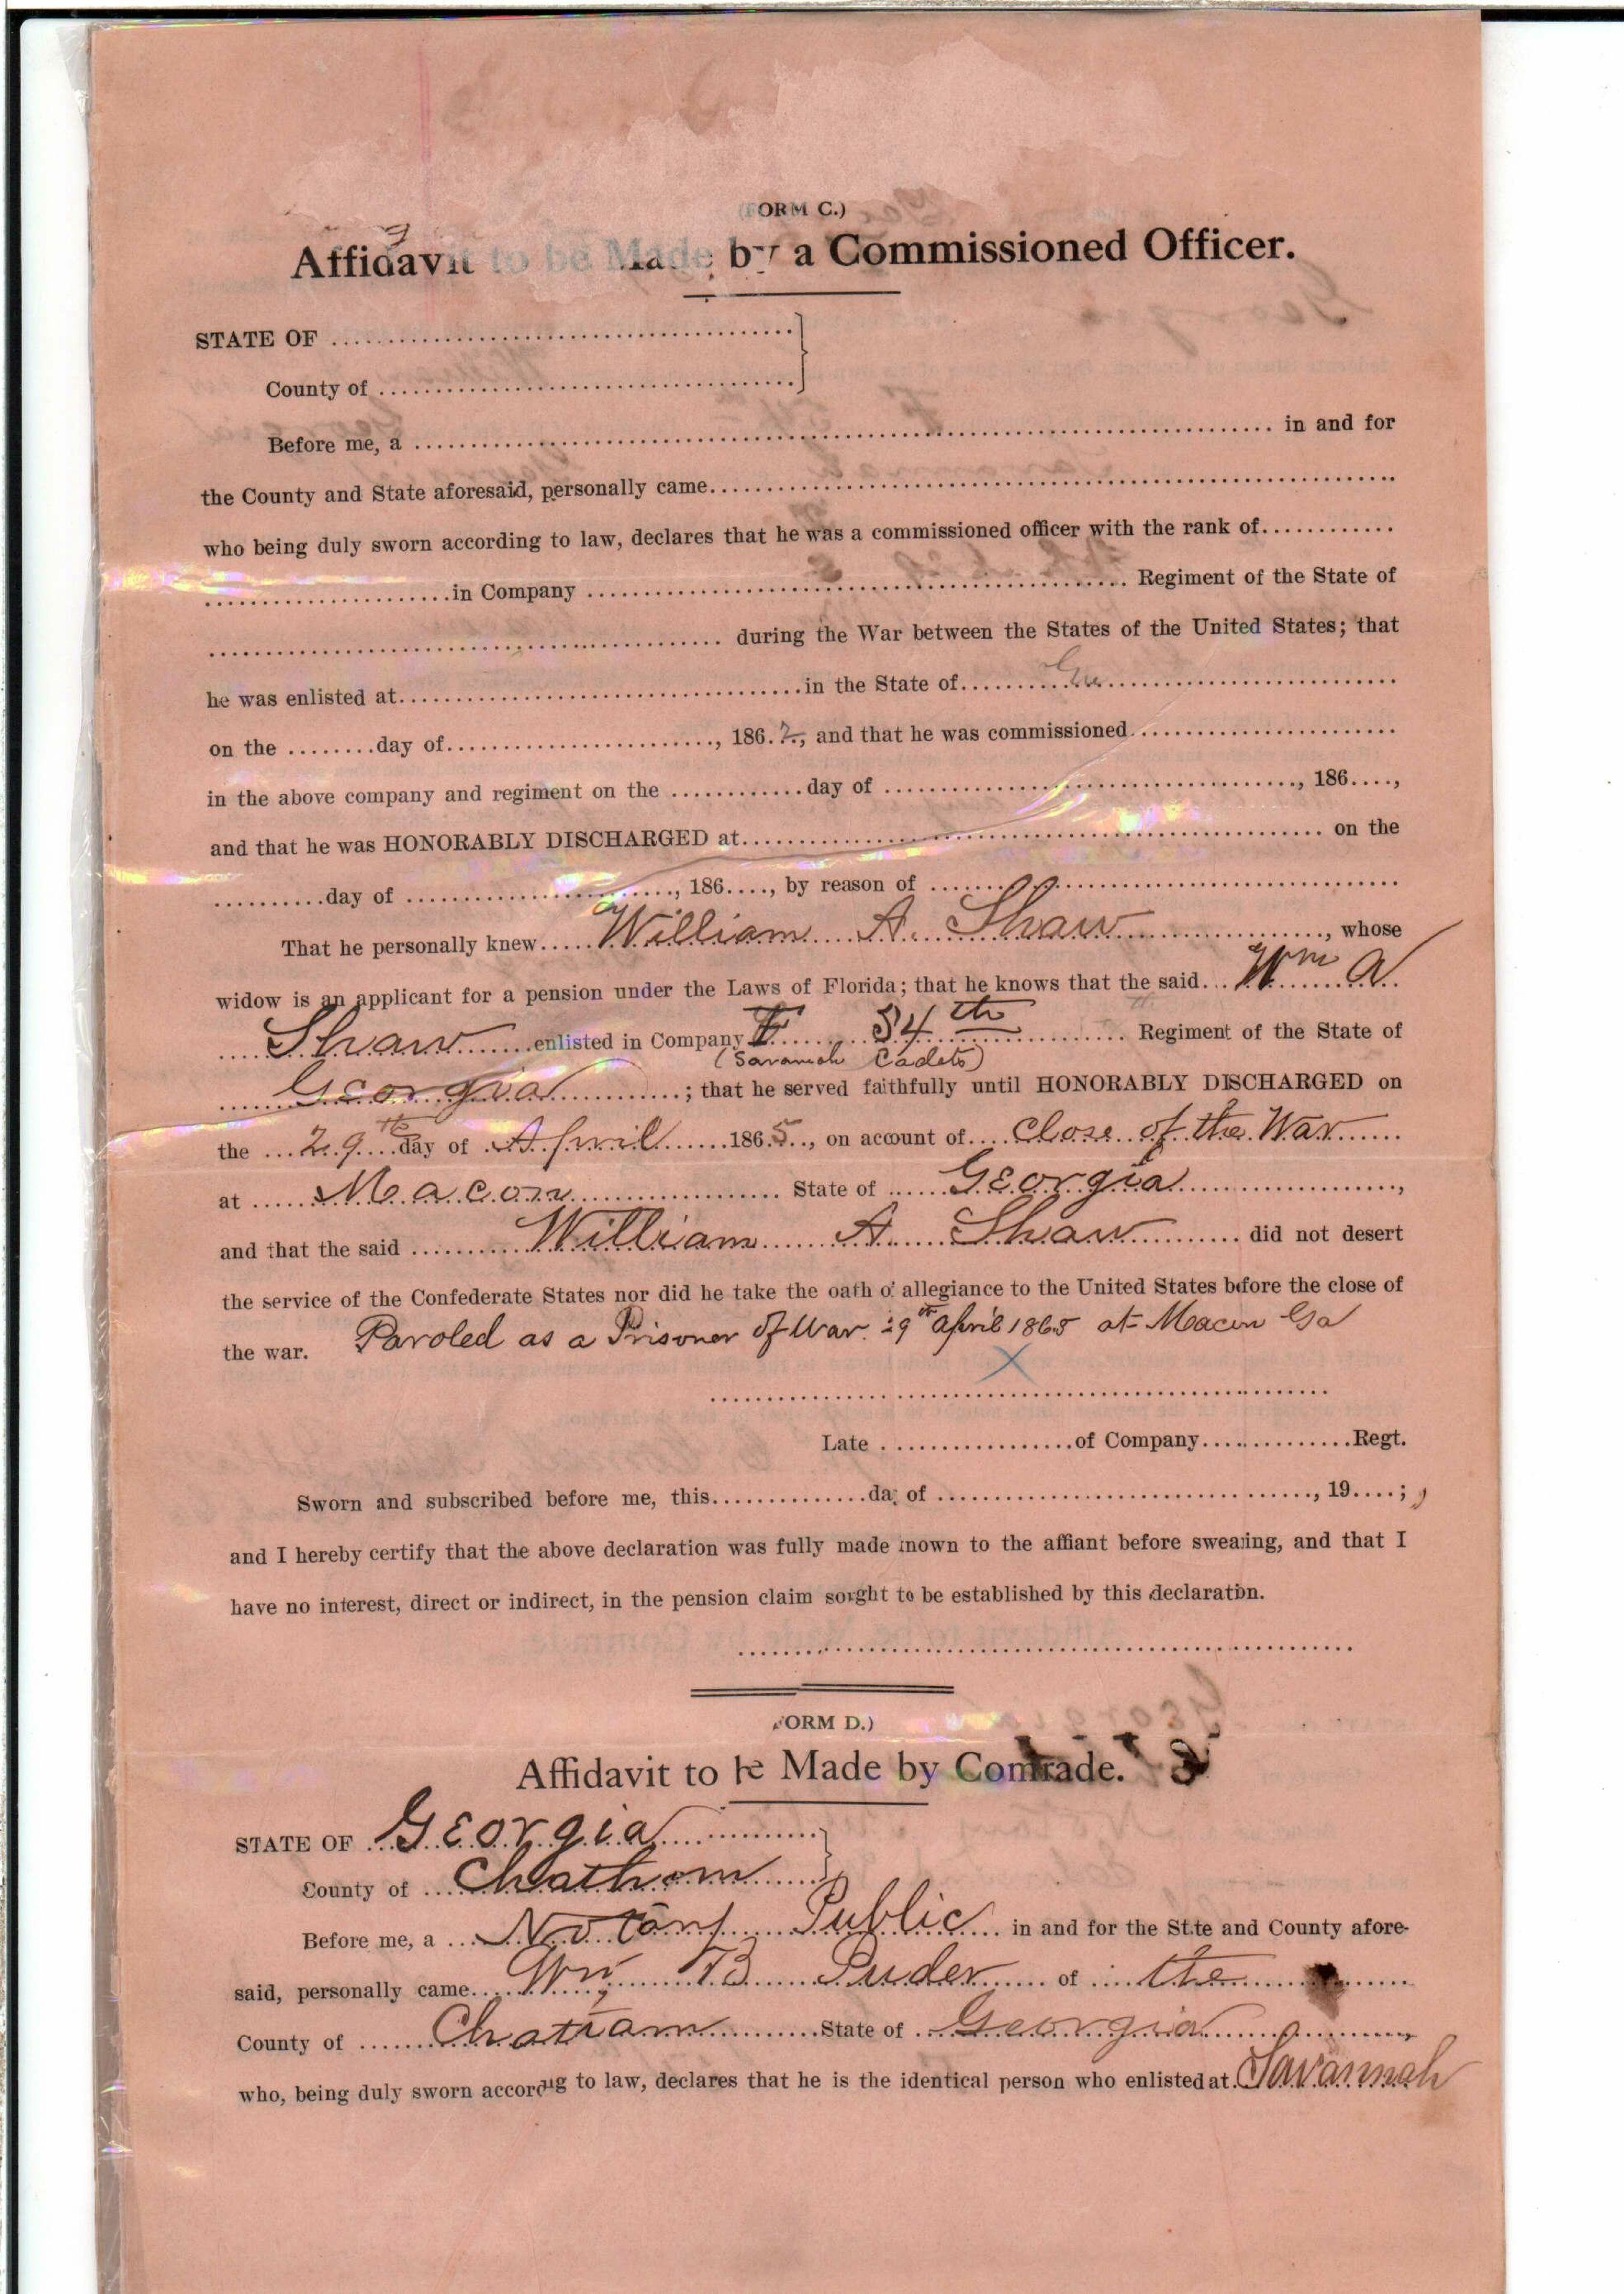 (FORM C.)
Affidavit to be Made by a Commissioned Officer.
STATE OF
County of
Before me, a in and for
the County and State aforesaid, personally came
who being duly sworn according to law, declares that he was a commissioned officer with the rank of
in Company Regiment of the State of
during the War between the States of the United States; that
he was enlisted at in the State of Ga
on the day of , 1862, and that he was commissioned
in the above company and regiment on the day of , 186 ,
and that he was HONORABLY DISCHARGED at on the
day of , 186 , by reason of
That he personally knew William A. Shaw , whose
widow is an applicant for a pension under the Laws of Florida; that he knows that the said Wm A
Shaw enlisted in Company F 54th Regiment of the State of
(Savannah Cadets)
Georgia ; that he served faithfully until HONORABLY DISCHARGED on
the 29th day of April 1865, on account of Close of the War
at Macon State of Georgia ,
and that the said William A Shaw did not desert
the service of the Confederate States nor did he take the oath of allegiance to the United States before the close of
the war. Paroled as a Prisoner of War 29th April 1865 at Macon Ga
X
Late of Company Regt.
Sworn and subscribed before me, this day of , 19 ;
and I hereby certify that the above declaration was fully made known to the affiant before swearing, and that I
have no interest, direct or indirect, in the pension claim sought to be established by this declaration.
(FORM D.)
Affidavit to be Made by Comrade. 3
STATE OF Georgia
County of Chatham
Before me, a Notary Public in and for the State and County afore-
said, personally came Wm B Puder of the
County of Chatham State of Georgia ,
who, being duly sworn according to law, declares that he is the identical person who enlisted at Savannah